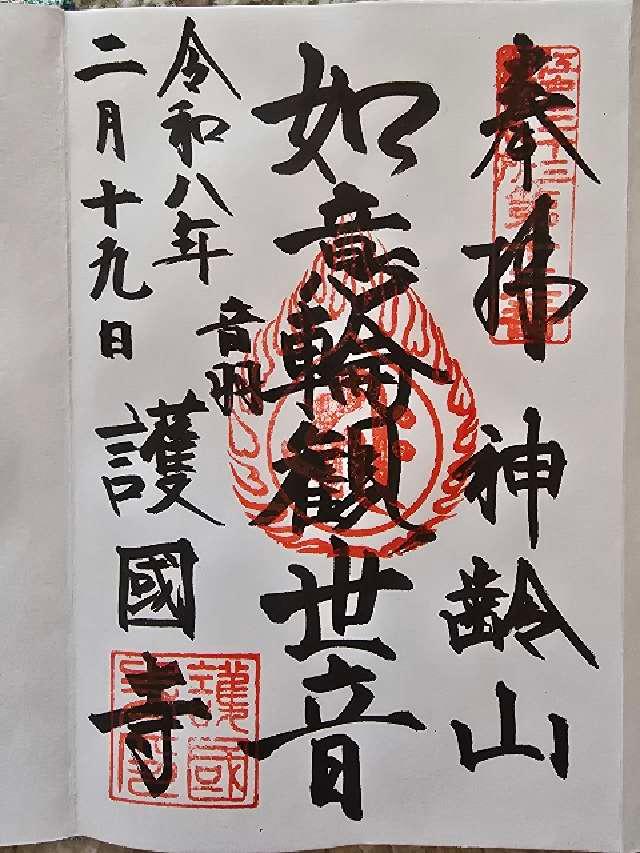 奉拝
神齢山
如意輪観世音
令和八年
二月十九日
音羽
護國寺
護國